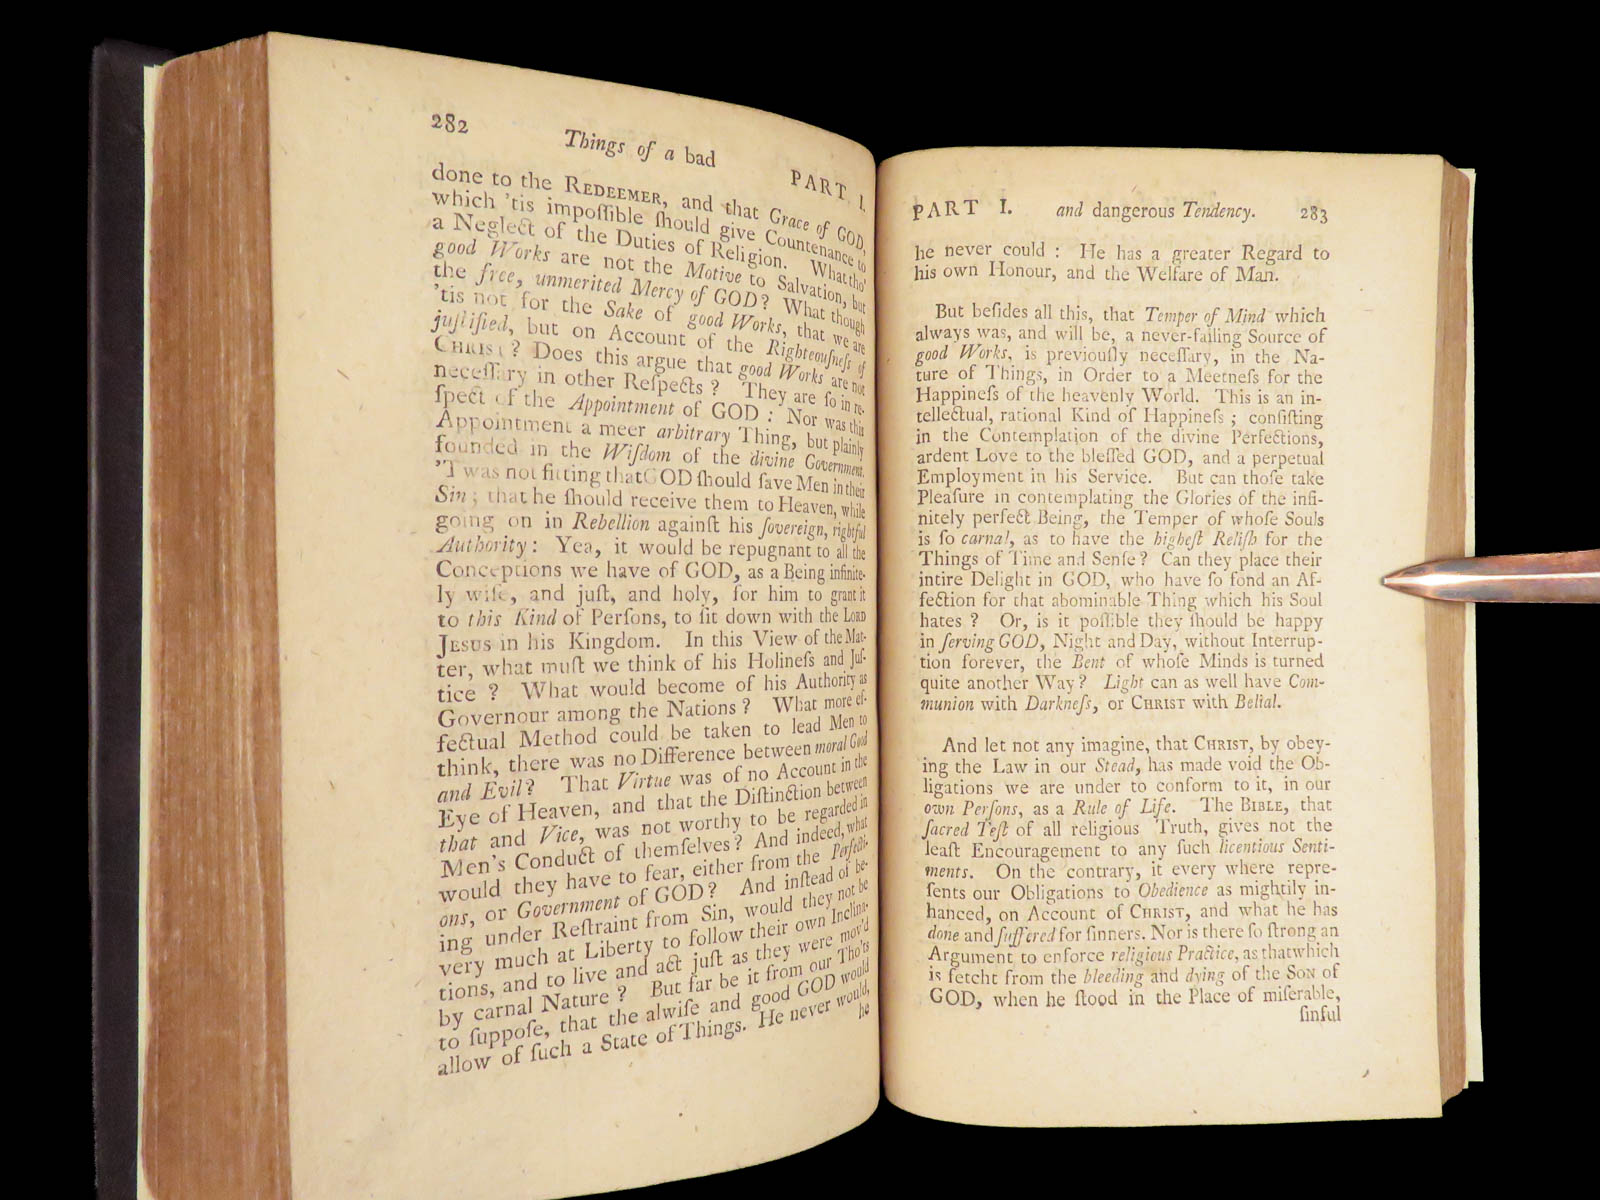 282 Things of a bad PART I.
done to the REDEEMER, and that Grace of GOD,
which 'tis impoſſible ſhould give Countenance to
a Neglect of the Duties of Religion. What tho'
good Works are not the Motive to Salvation, but
the free, unmerited Mercy of GOD? What though
'tis not for the Sake of good Works, that we are
juſtified, but on Account of the Righteouſneſs of
CHRIST? Does this argue that good Works are not
neceſſary in other Reſpects? They are ſo in re-
ſpect of the Appointment of GOD: Nor was this
Appointment a meer arbitrary Thing, but plainly
founded in the Wiſdom of the divine Government.
'Twas not fitting that GOD ſhould ſave Men in their
Sin; that he ſhould receive them to Heaven, while
going on in Rebellion againſt his ſovereign, rightful
Authority: Yea, it would be repugnant to all the
Conceptions we have of GOD, as a Being infinite-
ly wiſe, and juſt, and holy, for him to grant it
to this Kind of Perſons, to ſit down with the LORD
JESUS in his Kingdom. In this View of the Mat-
ter, what muſt we think of his Holineſs and Juſ-
tice? What would become of his Authority as
Governour among the Nations? What more ef-
fectual Method could be taken to lead Men to
think, there was no Difference between moral Good
and Evil? That Virtue was of no Account in the
Eye of Heaven, and that the Diſtinction between
that and Vice, was not worthy to be regarded in
Men's Conduct of themſelves? And indeed, what
would they have to fear, either from the Perfecti-
ons, or Government of GOD? And inſtead of be-
ing under Reſtraint from Sin, would they not be
very much at Liberty to follow their own Inclina-
tions, and to live and act juſt as they were mov'd
by carnal Nature? But far be it from our Tho'ts
to ſuppoſe, that the alwiſe and good GOD would
allow of ſuch a State of Things. He never would,
he
PART I. and dangerous Tendency. 283
he never could: He has a greater Regard to
his own Honour, and the Welfare of Man.
But beſides all this, that Temper of Mind which
always was, and will be, a never-failing Source of
good Works, is previouſly neceſſary, in the Na-
ture of Things, in Order to a Meetneſs for the
Happineſs of the heavenly World. This is an in-
tellectual, rational Kind of Happineſs; conſiſting
in the Contemplation of the divine Perfections,
ardent Love to the bleſſed GOD, and a perpetual
Employment in his Service. But can thoſe take
Pleaſure in contemplating the Glories of the infi-
nitely perfect Being, the Temper of whoſe Souls
is ſo carnal, as to have the higheſt Reliſh for the
Things of Time and Senſe? Can they place their
intire Delight in GOD, who have ſo fond an Af-
fection for that abominable Thing which his Soul
hates? Or, is it poſſible they ſhould be happy
in ſerving GOD, Night and Day, without Interrup-
tion forever, the Bent of whoſe Minds is turned
quite another Way? Light can as well have Com-
munion with Darkneſs, or CHRIST with Belial.
And let not any imagine, that CHRIST, by obey-
ing the Law in our Stead, has made void the Ob-
ligations we are under to conform to it, in our
own Perſons, as a Rule of Life. The BIBLE, that
ſacred Teſt of all religious Truth, gives not the
leaſt Encouragement to any ſuch licentious Senti-
ments. On the contrary, it every where repre-
ſents our Obligations to Obedience as mightily in-
hanced, on Account of CHRIST, and what he has
done and ſuffered for ſinners. Nor is there ſo ſtrong an
Argument to enforce religious Practice, as that which
is fetcht from the bleeding and dying of the SON of
GOD, when he ſtood in the Place of miſerable,
ſinful